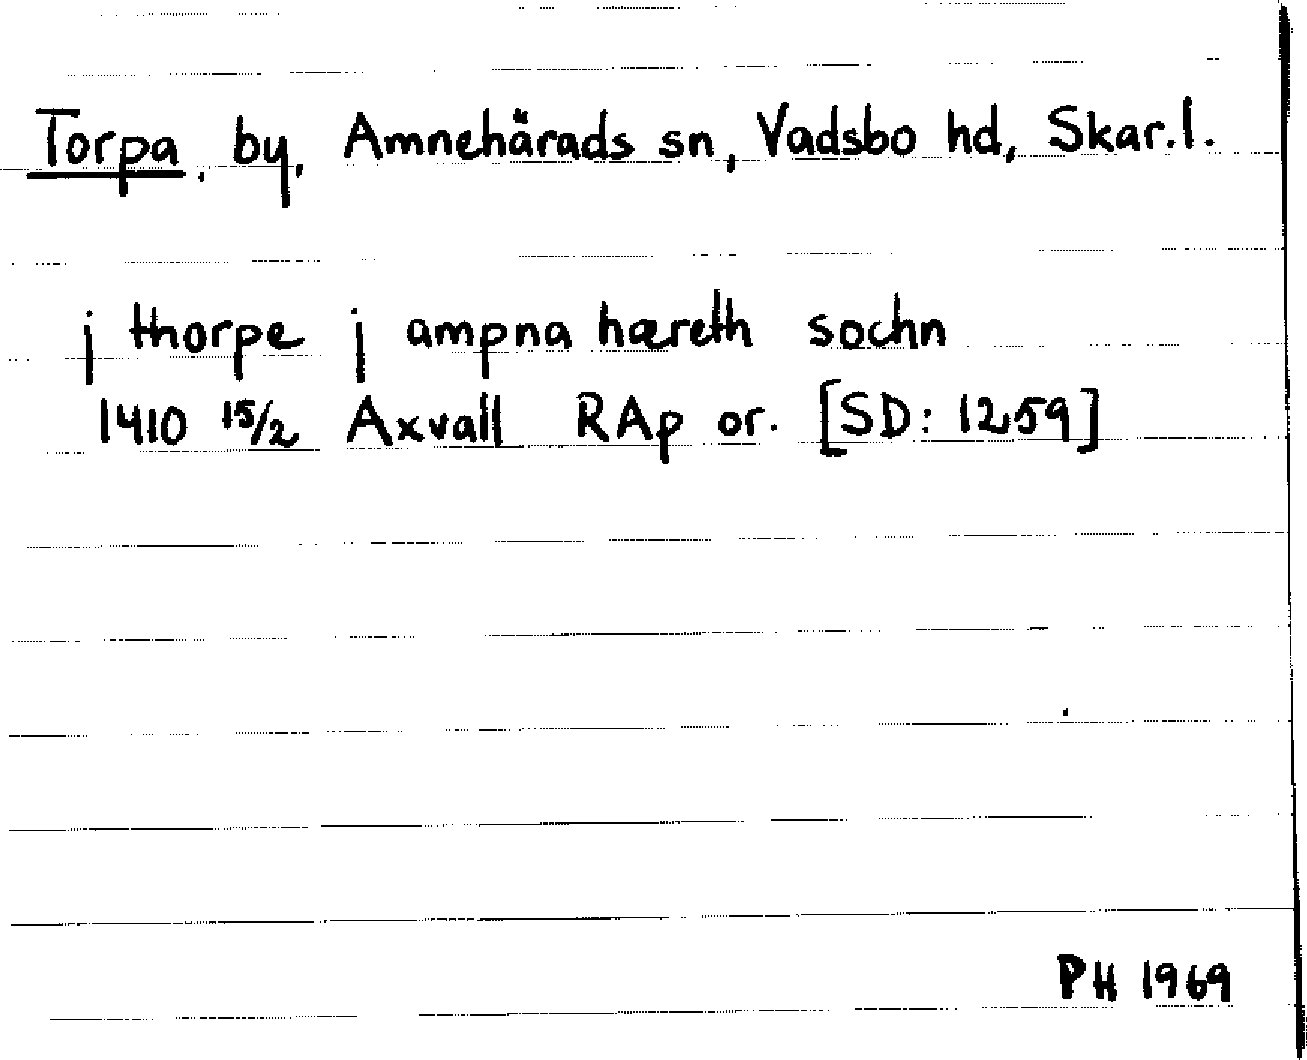 Torpa, by, Amnehärads sn, Vadsbo hd, Skar.l.
j thorpe j ampna hæreth sochn
1410 15/2 Axvall RAp or. [SD: 1259]
PH 1969